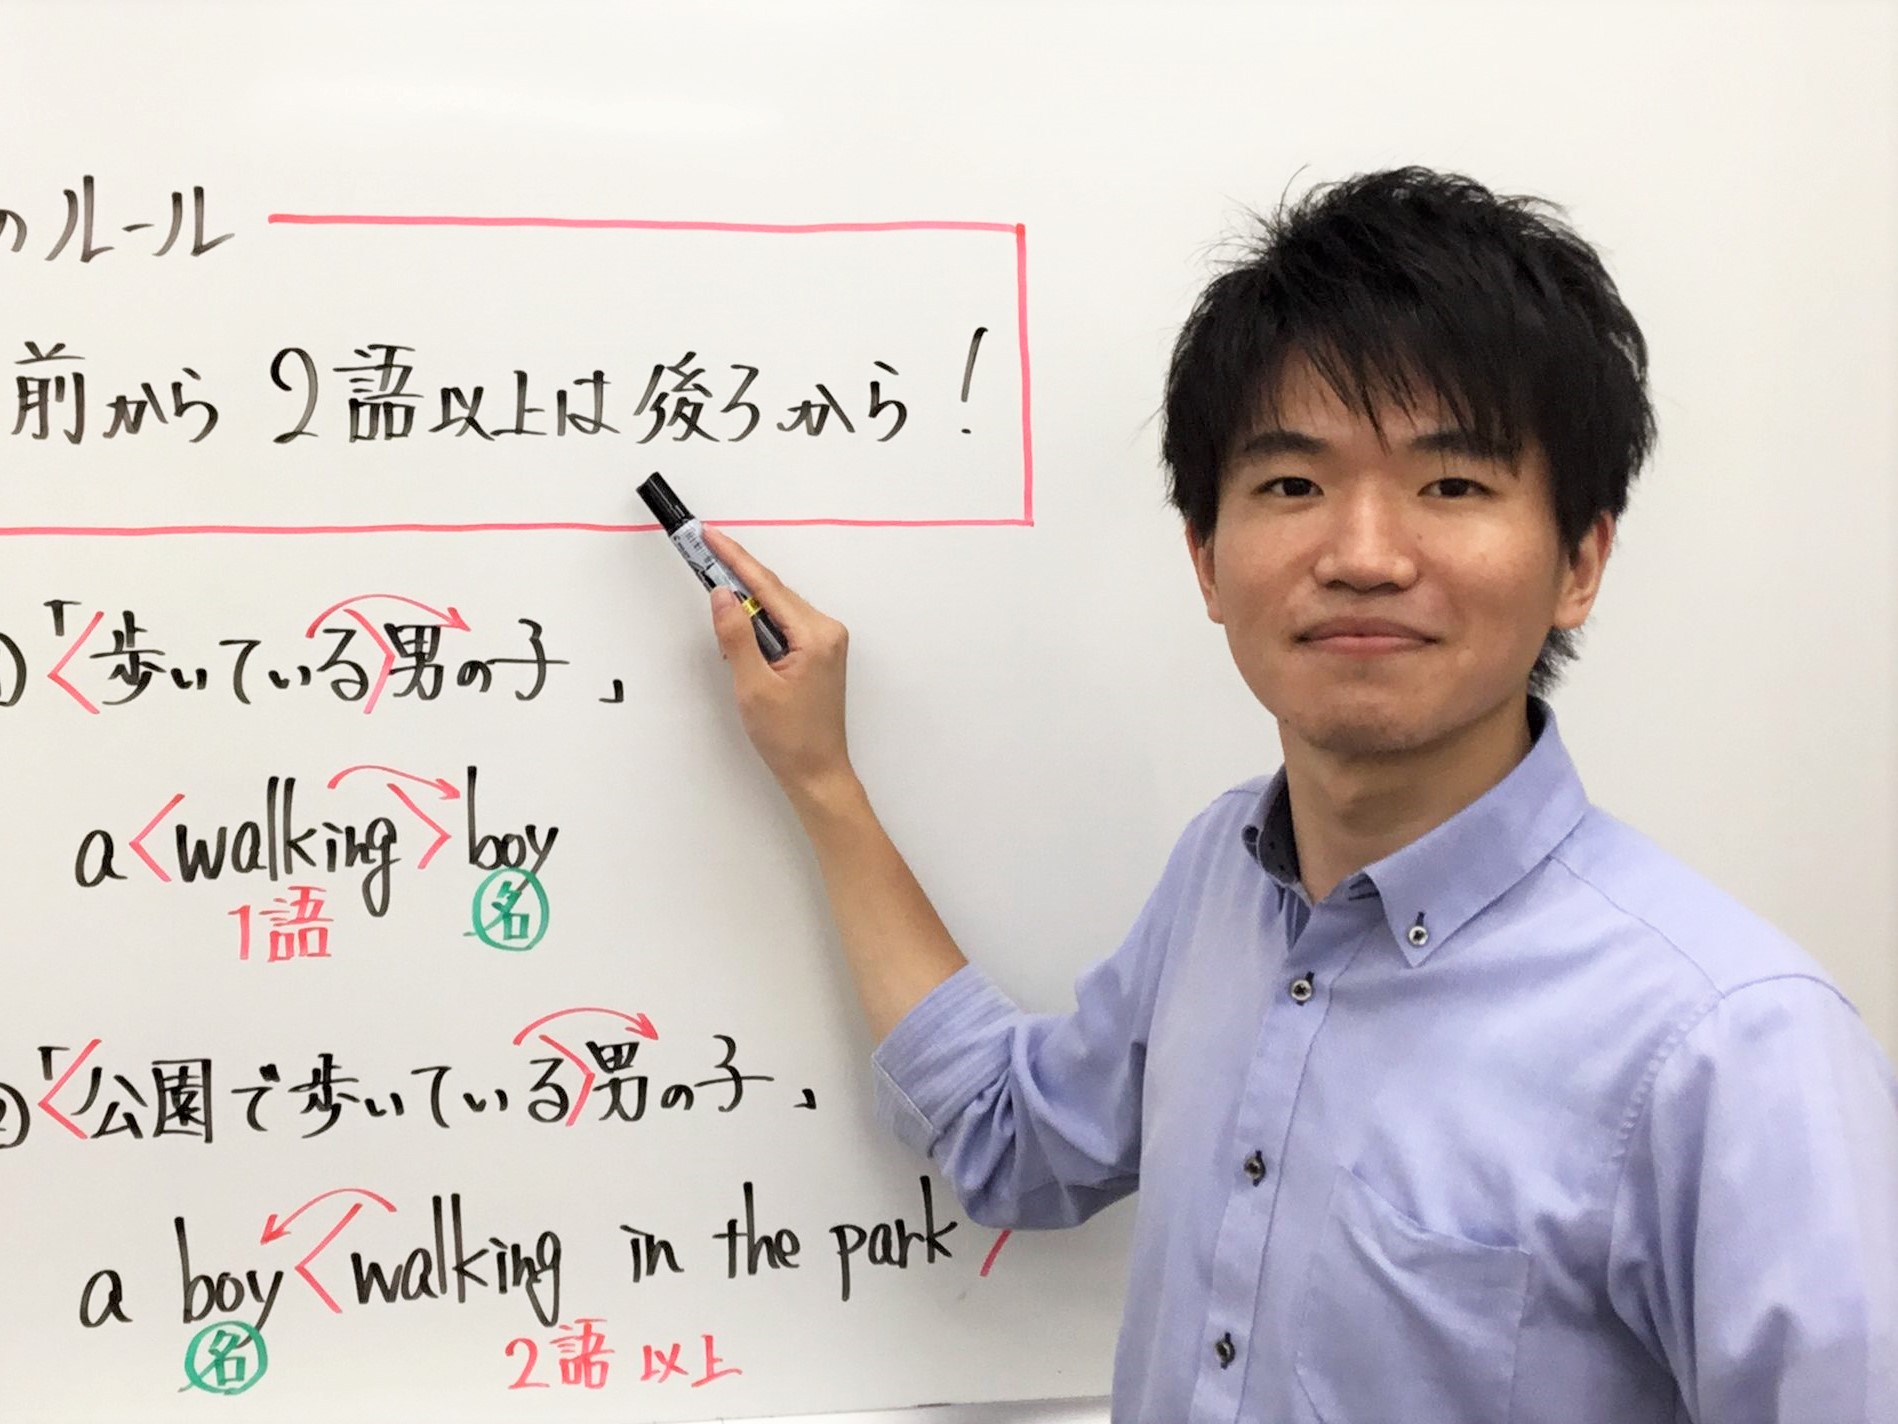 のルール
前から 2語以上は後ろから!
「<歩いている>男の子」
a <walking> boy
1語 名
②「<公園で歩いている>男の子」
a boy <walking in the park
名 2語以上